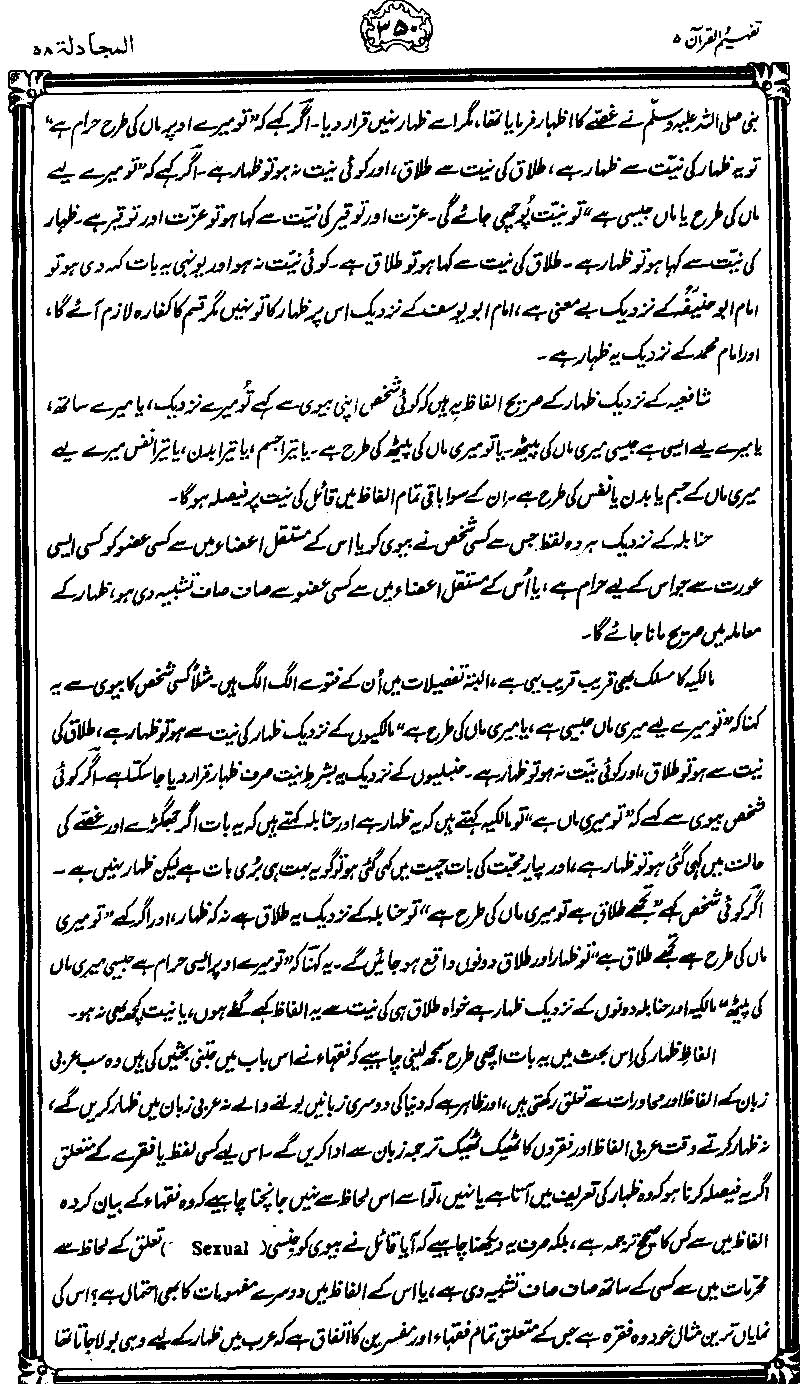 تفہیم القرآن ۵
۳۵۰
المجادلۃ ۵۸
نبی صلی اللہ علیہ وسلم نے غصّے کا اظہار فرمایا تھا، مگر اسے ظہار نہیں قرار دیا۔ اگر کہے کہ ”تو میرے اوپر ماں کی طرح حرام ہے“
تو یہ ظہار کی نیّت سے ظہار ہے، طلاق کی نیت سے طلاق، اور کوئی نیت نہ ہو تو ظہار ہے۔ اگر کہے کہ ”تو میرے لیے
ماں کی طرح یا ماں جیسی ہے“ تو نیّت پُوچھی جائے گی۔ عزّت اور توقیر کی نیّت سے کہا ہو تو عزّت اور توقیر ہے۔ ظہار
کی نیّت سے کہا ہو تو ظہار ہے۔ طلاق کی نیت سے کہا ہو تو طلاق ہے۔ کوئی نیّت نہ ہو اور یونہی یہ بات کہہ دی ہو تو
امام ابو حنیفہؒ کے نزدیک بے معنی ہے، امام ابو یوسف کے نزدیک اس پر ظہار کا تو نہیں مگر قسم کا کفارہ لازم آئے گا،
اور امام محمد کے نزدیک یہ ظہار ہے۔
شافعیہ کے نزدیک ظہار کے صریح الفاظ یہ ہیں کہ کوئی شخص اپنی بیوی سے کہے تُو میرے نزدیک، یا میرے ساتھ،
یا میرے لیے ایسی ہے جیسی میری ماں کی پیٹھ۔ یا تو میری ماں کی پیٹھ کی طرح ہے۔ یا تیرا جسم، یا تیرا بدن، یا تیرا نفس میرے لیے
میری ماں کے جسم یا بدن یا نفس کی طرح ہے۔ ان کے سوا باقی تمام الفاظ میں قائل کی نیت پر فیصلہ ہو گا۔
حنابلہ کے نزدیک ہر وہ لفظ جس سے کسی شخص نے بیوی کو یا اس کے مستقل اعضاء میں سے کسی عضو کو کسی ایسی
عورت سے جو اس کے لیے حرام ہے، یا اُس کے مستقل اعضاء میں سے کسی عضو سے صاف صاف تشبیہ دی ہو، ظہار کے
معاملہ میں صریح مانا جائے گا۔
مالکیہ کا مسلک بھی قریب قریب یہی ہے، البتہ تفصیلات میں اُن کے فتوے الگ الگ ہیں۔ مثلاً کسی شخص کا بیوی سے یہ
کہنا کہ ”تو میرے لیے میری ماں جیسی ہے، یا میری ماں کی طرح ہے“ مالکیوں کے نزدیک ظہار کی نیت سے ہو تو ظہار ہے، طلاق کی
نیت سے ہو تو طلاق، اور کوئی نیّت نہ ہو تو ظہار ہے۔ حنبلیوں کے نزدیک یہ بشرطِ نیت صرف ظہار قرار دیا جا سکتا ہے۔ اگر کوئی
شخص بیوی سے کہے کہ ”تو میری ماں ہے“ تو مالکیہ کہتے ہیں کہ یہ ظہار ہے اور حنابلہ کہتے ہیں کہ یہ بات اگر جھگڑے اور غصّے کی
حالت میں کہی گئی ہو تو ظہار ہے، اور پیار محبّت کی بات چیت میں کہی گئی ہو تو گو یہ بہت ہی بُری بات ہے لیکن ظہار نہیں ہے۔
اگر کوئی شخص کہے ”تجھے طلاق ہے تو میری ماں کی طرح ہے“ تو حنابلہ کے نزدیک یہ طلاق ہے نہ کہ ظہار، اور اگر کہے ”تو میری
ماں کی طرح ہے تجھے طلاق ہے“ تو ظہار اور طلاق دونوں واقع ہو جائیں گے۔ یہ کہنا کہ ”تو میرے اوپر ایسی حرام ہے جیسی میری ماں
کی پیٹھ“ مالکیہ اور حنابلہ دونوں کے نزدیک ظہار ہے خواہ طلاق ہی کی نیت سے یہ الفاظ کہے گئے ہوں، یا نیت کچھ بھی نہ ہو۔
الفاظِ ظہار کی اِس بحث میں یہ بات اچھی طرح سمجھ لینی چاہیے کہ فقہاء نے اس باب میں جتنی بحثیں کی ہیں وہ سب عربی
زبان کے الفاظ اور محاورات سے تعلق رکھتی ہیں، اور ظاہر ہے کہ دنیا کی دوسری زبانیں بولنے والے نہ عربی زبان میں ظہار کریں گے،
نہ ظہار کرتے وقت عربی الفاظ اور فقروں کا ٹھیک ٹھیک ترجمہ زبان سے ادا کریں گے۔ اس لیے کسی لفظ یا فقرے کے متعلق
اگر یہ فیصلہ کرنا ہو کہ وہ ظہار کی تعریف میں آتا ہے یا نہیں، تو اسے اس لحاظ سے نہیں جانچنا چاہیے کہ وہ فقہاء کے بیان کردہ
الفاظ میں سے کس کا صحیح ترجمہ ہے، بلکہ صرف یہ دیکھنا چاہیے کہ آیا قائل نے بیوی کو جِنسی (Sexual) تعلق کے لحاظ سے
محرّمات میں سے کسی کے ساتھ صاف صاف تشبیہ دی ہے، یا اس کے الفاظ میں دوسرے مفہومات کا بھی احتمال ہے؟ اس کی
نمایاں ترین مثال خود وہ فقرہ ہے جس کے متعلق تمام فقہاء اور مفسرین کا اتفاق ہے کہ عرب میں ظہار کے لیے وہی بولا جاتا تھا